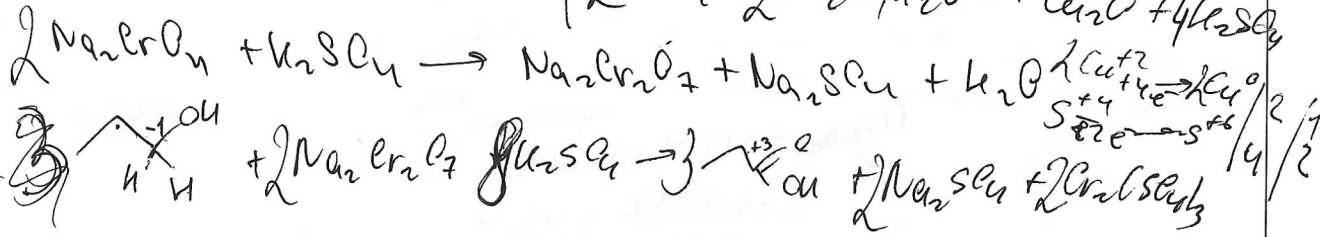 +4H₂SO₄
2Na₂CrO₄ + H₂SO₄ → Na₂Cr₂O₇ + Na₂SO₄ + H₂O
2Cu⁺² +4e → 2Cu⁰ | 2 | 1
S⁺⁴ -2e → S⁺⁶ | 4 | 2
3 -1 OH H H + 2Na₂Cr₂O₇ 8H₂SO₄ → 3 +3 O OH + 2Na₂SO₄ + 2Cr₂(SO₄)₃